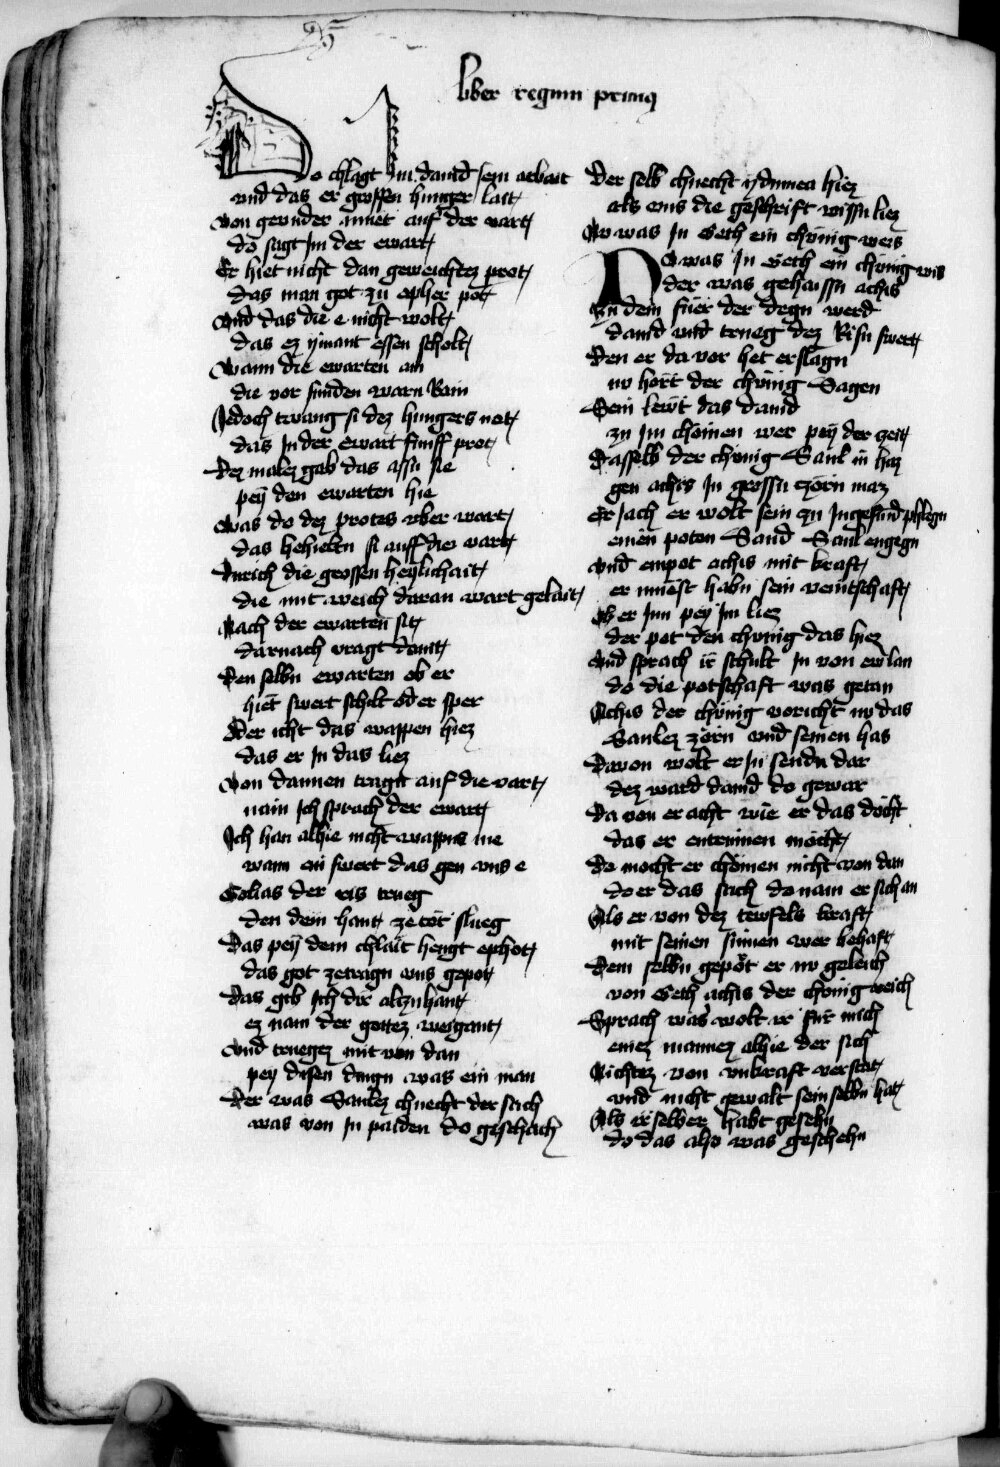 liber regum primus
Do chlagt Im dauid sein arbait
vnd das er grossen hunger lait
von geunder annet auf der vart
do sagt Im der ewart
Er hiet nicht dan geweichtez prot
das man got zu opher pot
Vnd das die e nicht wolt
das ez ymant essen scholt
Wann die ewarten ain
die vor sunden warn Rain
Jedoch twang si dez hungers not
das In der ewart funff prot
Dez malez gab das assn sie
pey den ewarten hie
Was do dez protes vber wart
das behieltn si auff die vart
Durich die grossen heylichait
die mit weich daran wart gelait
Nach der ewarten sit
darnach vragt dauit
Den selbn ewarten ob er
hiet swert schilt oder sper
Oder icht das wappen hiez
das er In das liez
Von dannen tragn auf die vart
nain Ich sprach der ewart
Ich han alhie nicht wappns me
wann ein swert das gen vns e
Golias der ris trueg
den dein hant ze tot slueg
Das pey dem chlait hengt ephot
das got zetragn vns gepot
Das gib Ich dir alzuhant
ez nam der gotez weigant
Vnd truegez mit von dan
pey disen dingn was ein man
Der was Saulez chnecht der sach
was von In paiden do geschach
Der selb chnecht ydumea hiez
als vns die geschrift wissn liez
Nv was In Geth ein chunig weis
Do was In Geth ein chunig weis
der was gehaissn achis
Zu dem fuer der degn werd
dauid vnd trueg dez Risn swert
Den er da vor het erslagn
nv hort der chunig Sagen
Sein lewt das dauid
zu Im chomen wer pey der zeit
Dasselb der chunig Saul in haz
gen achis In grossn zorn maz
Er Iach er wolt sein zu Ingesind phlegn
einen poton Sand Saul engegn
Vnd enpot achis mit kraft
er muest habn sein veintschaft
Ob er Inn pey Im liez
der pot den chunig das hiez
Vnd sprach ir schult In von ew lan
do die potschaft was getan
Achis der chunig voricht nv das
Saulez zorn vnd seinen has
Davon wolt er In sendn dar
dez ward dauid do gewar
Da von er acht wie er das docht
das er entrinnen mocht
Do mocht er chomen nicht von dan
do er das sach do nam er sich an
Als er von dez tewfels kraft
mit seinen sinnen wer behaft
Dem selbn gepot er nv geleich
von Geth achis der chunig reich
Sprach was wolt ir fur mich
einez mannez alhie der sich
Nichtez von vnkraft verstat
vnd nicht gewalt sein selbn hat
Als ir selber habt gesehn
do das also was geschehn